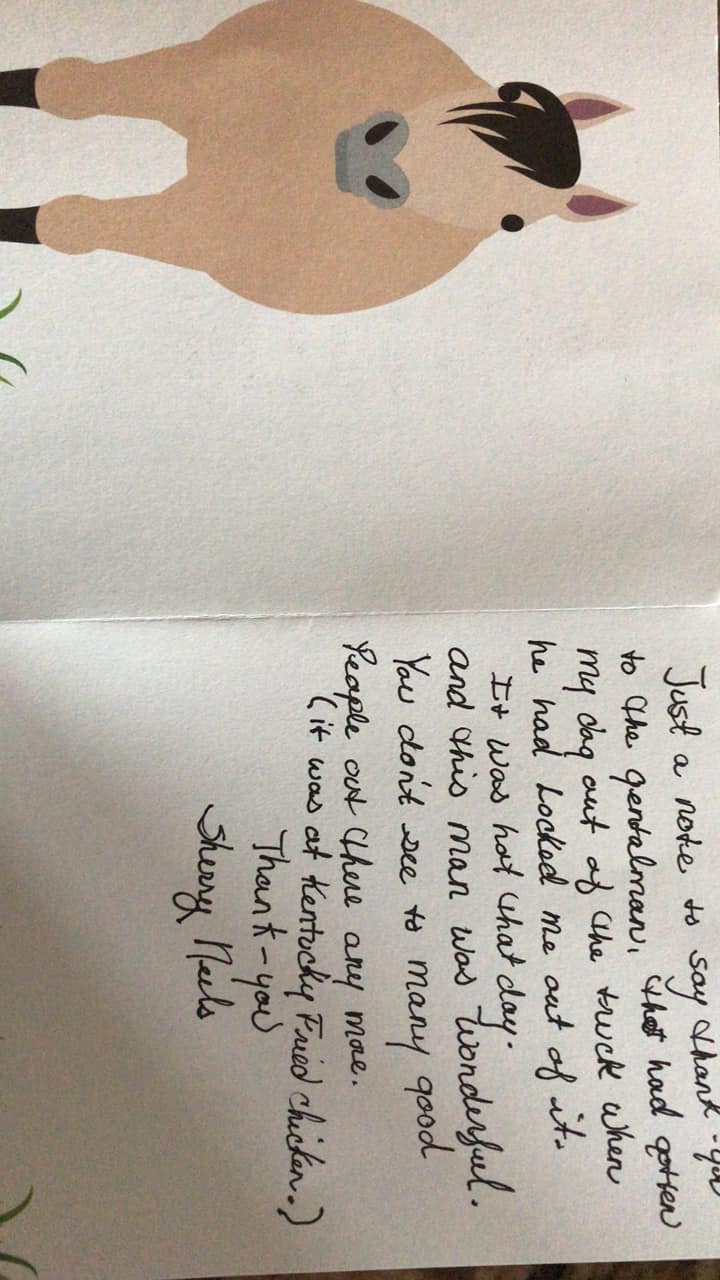 Just a note to say thank-you
to the gentalman, that had gotten
my dog out of the truck when
he had Locked me out of it.
It was hot that day.
and this man was wonderful.
You don't see to many good
People out there any more.
(it was at Kentucky Fried chicken.)
Thank-you
Sherry